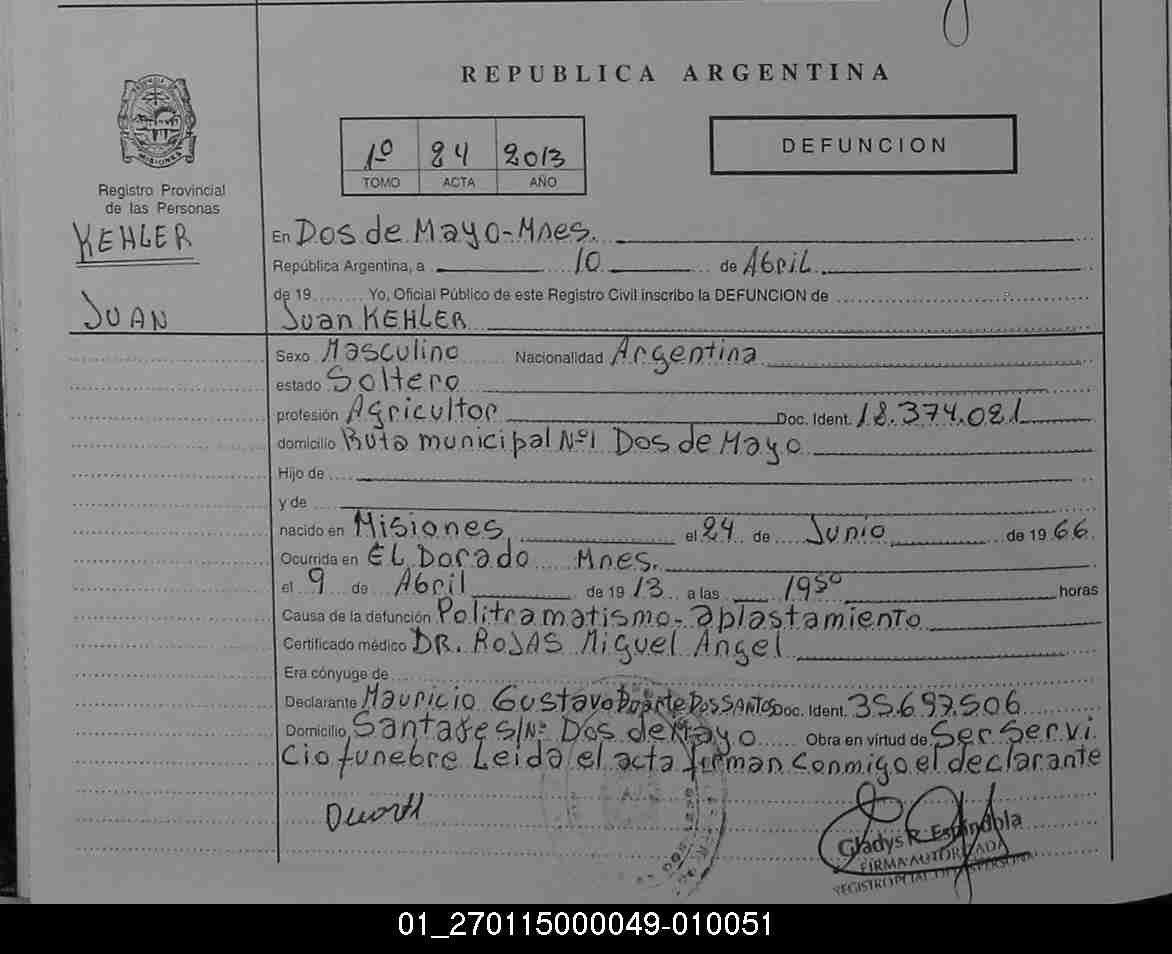 REPUBLICA ARGENTINA
1º 84 2013
TOMO ACTA AÑO
DEFUNCION
PROVINCIA DE MISIONES
Registro Provincial
de las Personas
KEHLER
JUAN
En Dos de Mayo-Mnes.
República Argentina, a 10 de Abril
de 19........ Yo, Oficial Público de este Registro Civil inscribo la DEFUNCION de
Juan KEHLER
Sexo Masculino Nacionalidad Argentina
estado Soltero
profesión Agricultor Doc. Ident. 18.374.081
domicilio Ruta municipal Nº1 Dos de Mayo
Hijo de
y de
nacido en Misiones el 24 de Junio de 1966.
Ocurrida en EL Dorado Mnes.
el 9 de Abril de 19 13 a las 19 50 horas
Causa de la defunción Politramatismo-aplastamiento
Certificado médico DR. ROJAS Miguel Angel
Era cónyuge de
Declarante Mauricio Gustavo Duarte Dos SANTOS Doc. Ident. 35.697.506
Domicilio Santa Fe S/Nº Dos de Mayo Obra en virtud de Ser Servi
cio funebre Leida el acta firman conmigo el declarante
Gladys R. Espindola
FIRMA AUTORIZADA
REGISTRO PCIAL. DE LAS PERSONAS
01_270115000049-010051